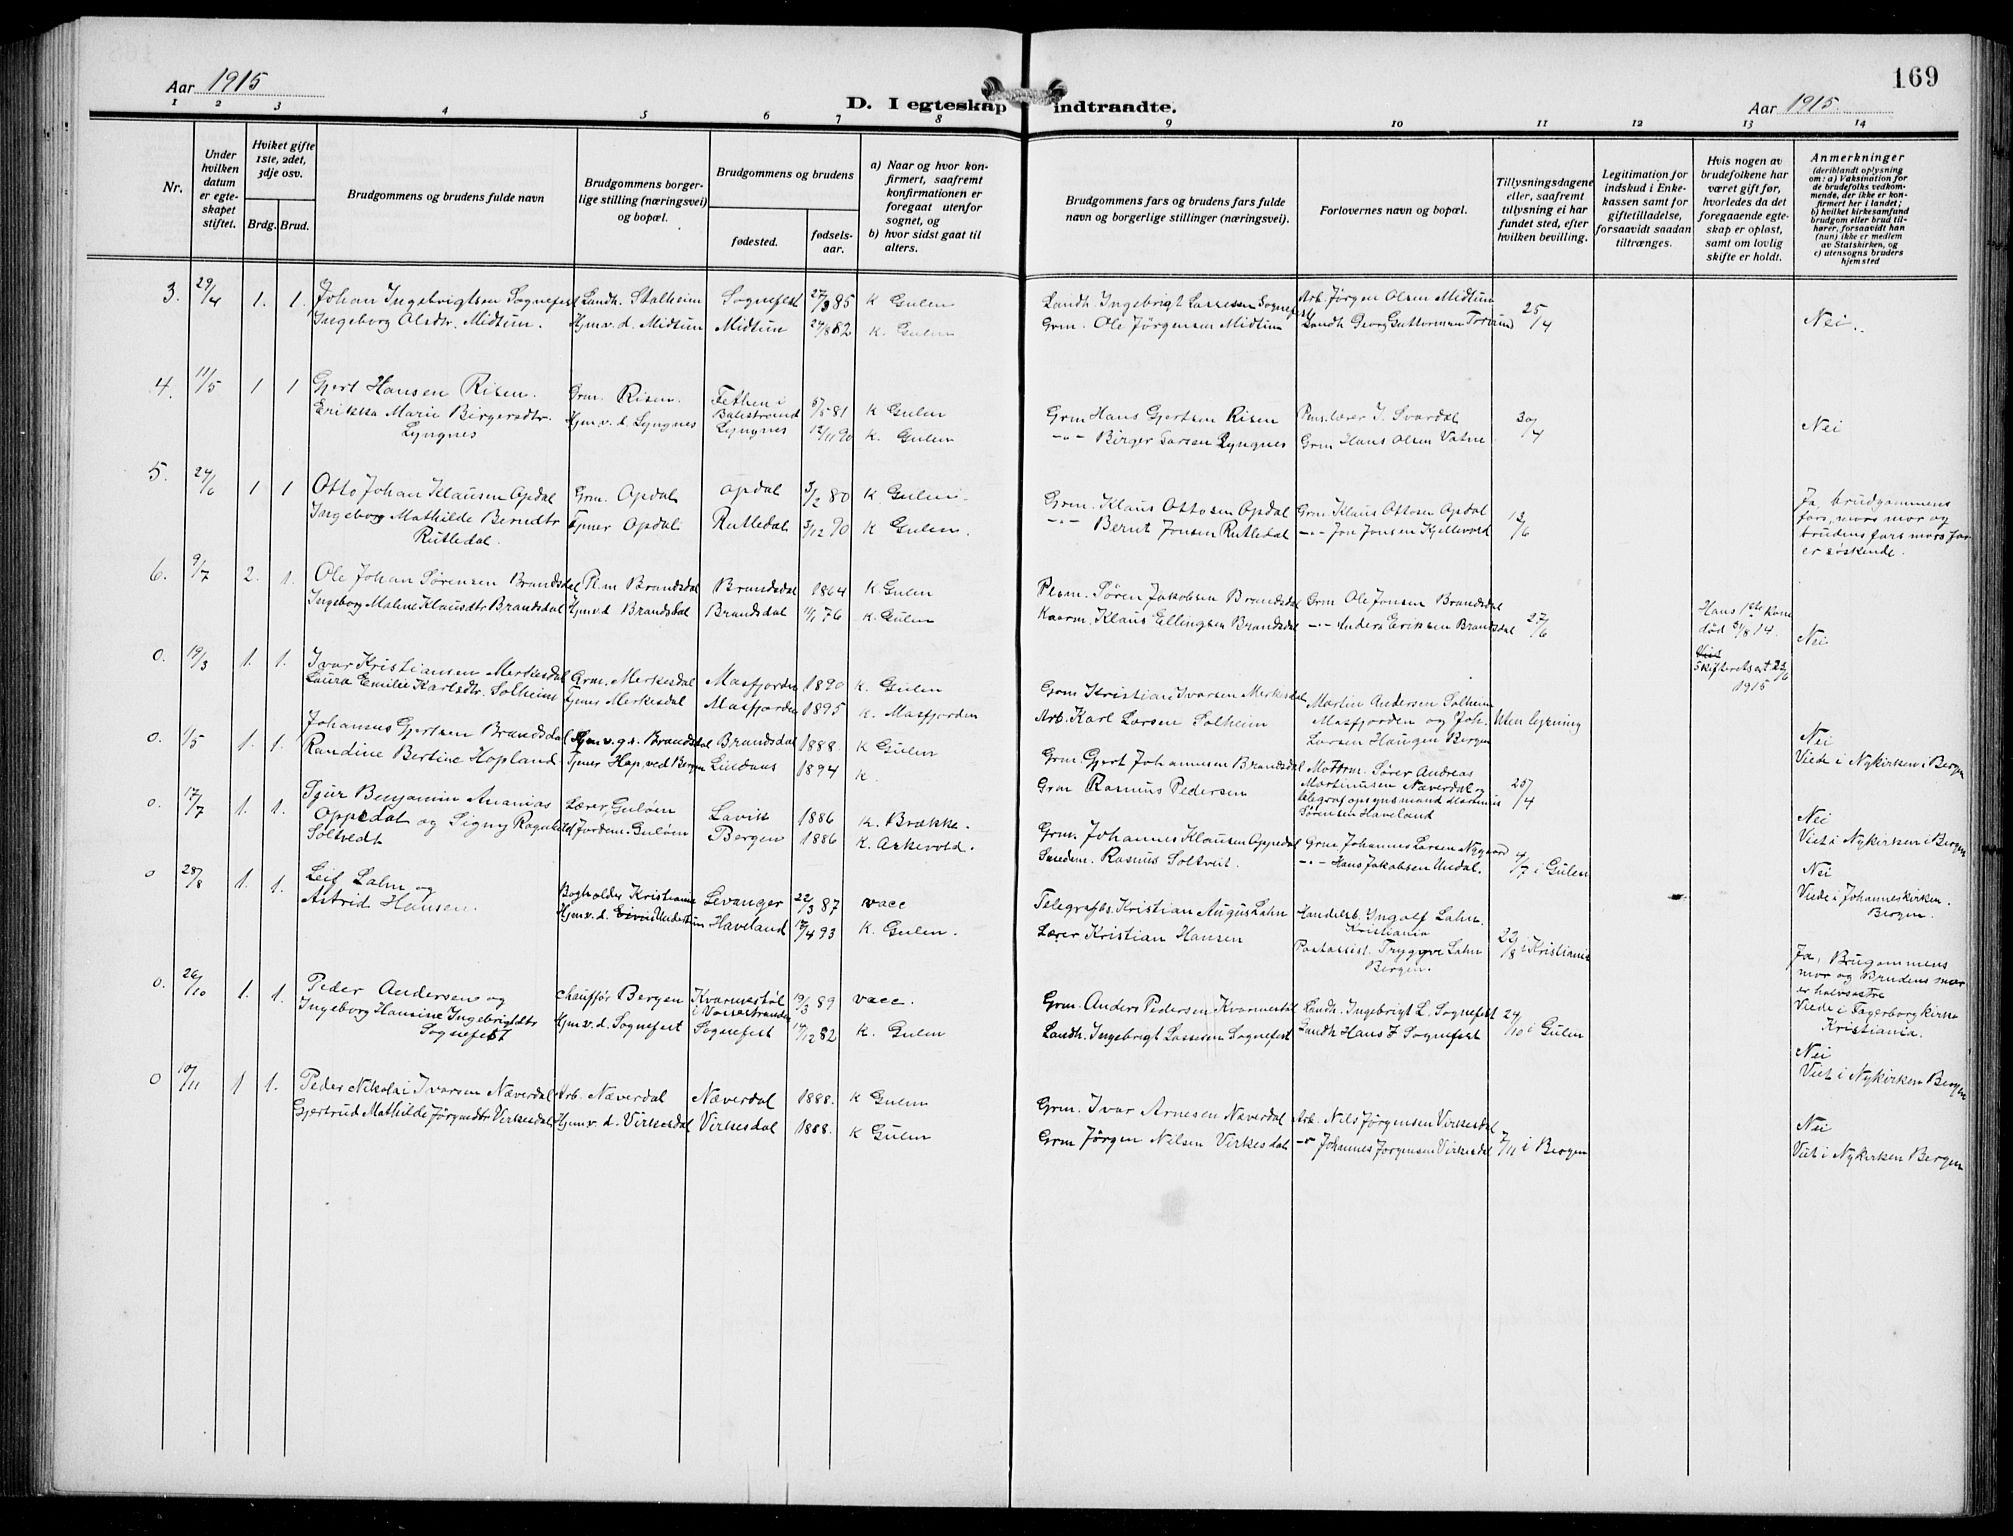 169
Aar 1915
D. I egteskap indtraadte.
Aar 1915.
1 2 3 4 5 6 7 8 9 10 11 12 13 14
Nr.
Under hvilken datum er egteskapet stiftet.
Hviket gifte 1ste, 2det, 3dje osv.
Brdg. Brud.
Brudgommens og brudens fulde navn
Brudgommens borgerlige stilling (næringsvei) og bopæl.
Brudgommens og brudens
fødested.
fødselsaar.
a) Naar og hvor konfirmert, saafremt konfirmationen er foregaat utenfor sognet, og
b) hvor sidst gaat til alters.
Brudgommens fars og brudens fars fulde navn og borgerlige stillinger (næringsvei).
Forlovernes navn og bopæl.
Tillysningsdagene eller, saafremt tillysning ei har fundet sted, efter hvilken bevilling.
Legitimation for indskud i Enkekassen samt for giftetilladelse, forsaavidt saadan tiltrænges.
Hvis nogen av brudefolkene har været gift før, hvorledes da det foregaaende egteskap er opløst, samt om lovlig skifte er holdt.
Anmerkninger
(deriblandt oplysning om: a) Vaksination for de brudefolks vedkommende, der ikke er konfirmert her i landet; b) hvilket kirkesamfund brudgom eller brud tilhører, forsaavidt han (hun) ikke er medlem av Statskirken, og c) utensogns bruders hjemsted
3. 29/4 1. 1. Johan Ingebrigtsen Sognefest Landh. Stalheim Sognefest 27/3 85 K Gulen Landh. Ingebrigt Lassesen Sognefest Arb. Jørgen Olsen Midtun 25/4 Nei.
Ingeborg Olsdtr. Midtun. Hjm v. d. Midtun Midtun 24/8 82 K. Gulen Grm. Ole Jørgensen Midtun Landh Georg Guttormsen
4. 11/5 1 1 Gjert Hansen Risen. Grm. Risen. Fethen i Balestrand /5 81 K Gulen Grm Hans Gjertsen Risen Pens. lærer I. Svardal 30/4 Nei
Erikka Marie Birgersdtr. Lyngnes Hjm v. d. Lyngnes Lyngnes 12/11 90 K. Gulen -"- Birger Larsen Lyngnes Grm Hans Olsen Vatne
5. 24/6 1 1 Otto Johan Klausen Opdal Grm. Opdal Opdal 3/2 80 K Gulen. Grm. Klaus Ottosen Opdal Grm. Klaus Ottosen Opdal 13/6 Ja, brudgommens fars, mors mor og brudens fars mors far er søskende.
Ingeborg Mathilde Berndtr Rutledal. Tjener Opdal Rutledal 3/12 90 K Gulen. -"- Bernt Jonsen Rutledal -"- Jon Jonsen Kjellevold
6. 9/7 2. 1. Ole Johan Sørensen Brandsdal Plm Brandsdal Brandsdal 1864 K. Gulen Plsm. Søren Jakobsen Brandsdal Grm Ole Jonsen Brandsdal 27/6 Hans 1ste kone død 31/8 14. Skifteretsat. 23/6 1915 Nei
Ingeborg Maline Klausdtr Brandsdal Hjm v. d Brandsdal Brandsdal 11/1 76 K. Gulen Kaarm. Klaus Ellingsen Brandsdal -"- Anders Eriksen Brandsdal
0. 19/3 1. 1. Ivar Kristiansen Merkesdal Grm. Merkesdal Masfjorden 1890 K. Gulen Grm Kristian Ivarsen Merkesdal Martin Andersen Solheim Masfjorden og Joh. Larsen Haugen Bergen Uten lysning Nei Viede i Nykirken i Bergen
Laura Emilie Karlsdtr. Solheim Tjener Merkesdal Masfjorden 1895 K. Masfjorden Arb. Karl Larsen Solheim
0. 1/5 1. 1. Johannes Gjertsen Brandsdal Hjm v. g. s. Brandsdal Brandsdal 1888. K Gulen Grm. Gjert Johannesen Brandsdal Søren Andreas Martinusen Næverdal og telegrafopsynsmand Martinus Sørensen Haveland 25/4 Nei Viet i Nykirken i Bergen
Randine Bertine Hopland Tjener Hop, ved Bergen Lindaas 1894 K. Grm Rasmus Pedersen
0. 17/7 1. 1. Sjur Benjamin Ananias Oppedal og Signy Ragnhild Soltvedt Lærer Guløen Lavik 1886 K. Brække. Grm. Johannes Klausen Oppedal Grm Johannes Larsen Nygaard 4/7 i Gulen Nei Viede i Johanneskirken. Bergen.
Jordm. Guløen Bergen 1886 K. Askevold. Rasmus Soltveit. -"- Hans Jakobsen Undal.
0 28/8 1. 1. Leif Lahn og Bogholder Kristiania Levanger 22/3 87 vacc Telegrafbs. Kristian August Lahn Handelsb. Ingolf Lahn. Kristiania 22/8 i Kristiania Ja, Brugommens mor og Brudens mor er halvsøstre Viede i Fagerborg kirke Kristiania.
Astrid Hansen. Hjm v. d. Haveland 17/4 93 K. Gulen. Lærer Kristian Hansen Postassist. Trygve Lahn Bergen.
0. 26/10 1. 1. Peder Andersen og chauffør Bergen Kvarmestøl i Vossestranden 19/3 89 vacc. Grm. Anders Pedersen Kvarmestøl Landh. Ingebrigt L. Sognefest 24/10 i Gulen Nei Viet i Nykirken Bergen
Ingeborg Hansine Ingebrigtdtr Sognefest Hjm v. d. Sognefest Sognefest 14/12 82 K. Gulen Landh. Ingebrigt Lassesen Sognefest Landh Hans I Sognefest
0 10/11 1 1. Peder Nikolai Ivarsen Næverdal Arb. Næverdal Næverdal 1888. K Gulen Grm. Ivar Arnesen Næverdal Arb. Nils Jørgensen Virkesdal 7/11 i Bergen Nei Viet i Nykirken Bergen
Gjertrud Mathilde Jørgendtr Virkesdal Hjm v. d. Virkesdal Virkesdal 1888. K Gulen Grm Jørgen Nilsen Virkesdal -"- Johannes Jørgensen Virkesdal